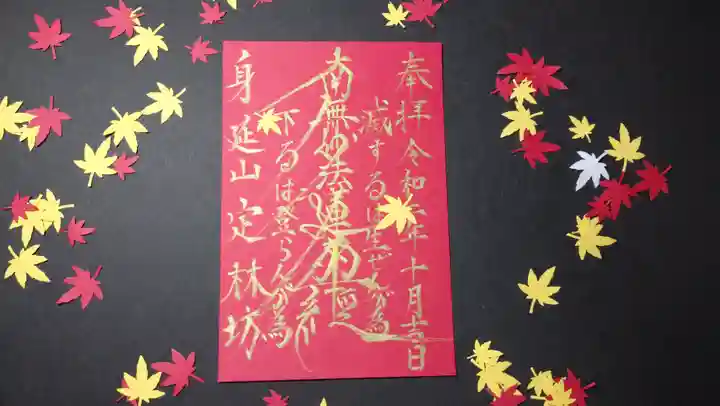 奉拝 令和六年十月十三日
滅するは生ぜんが為
南無妙法蓮華経
下るは登らんが為
身延山 定林坊